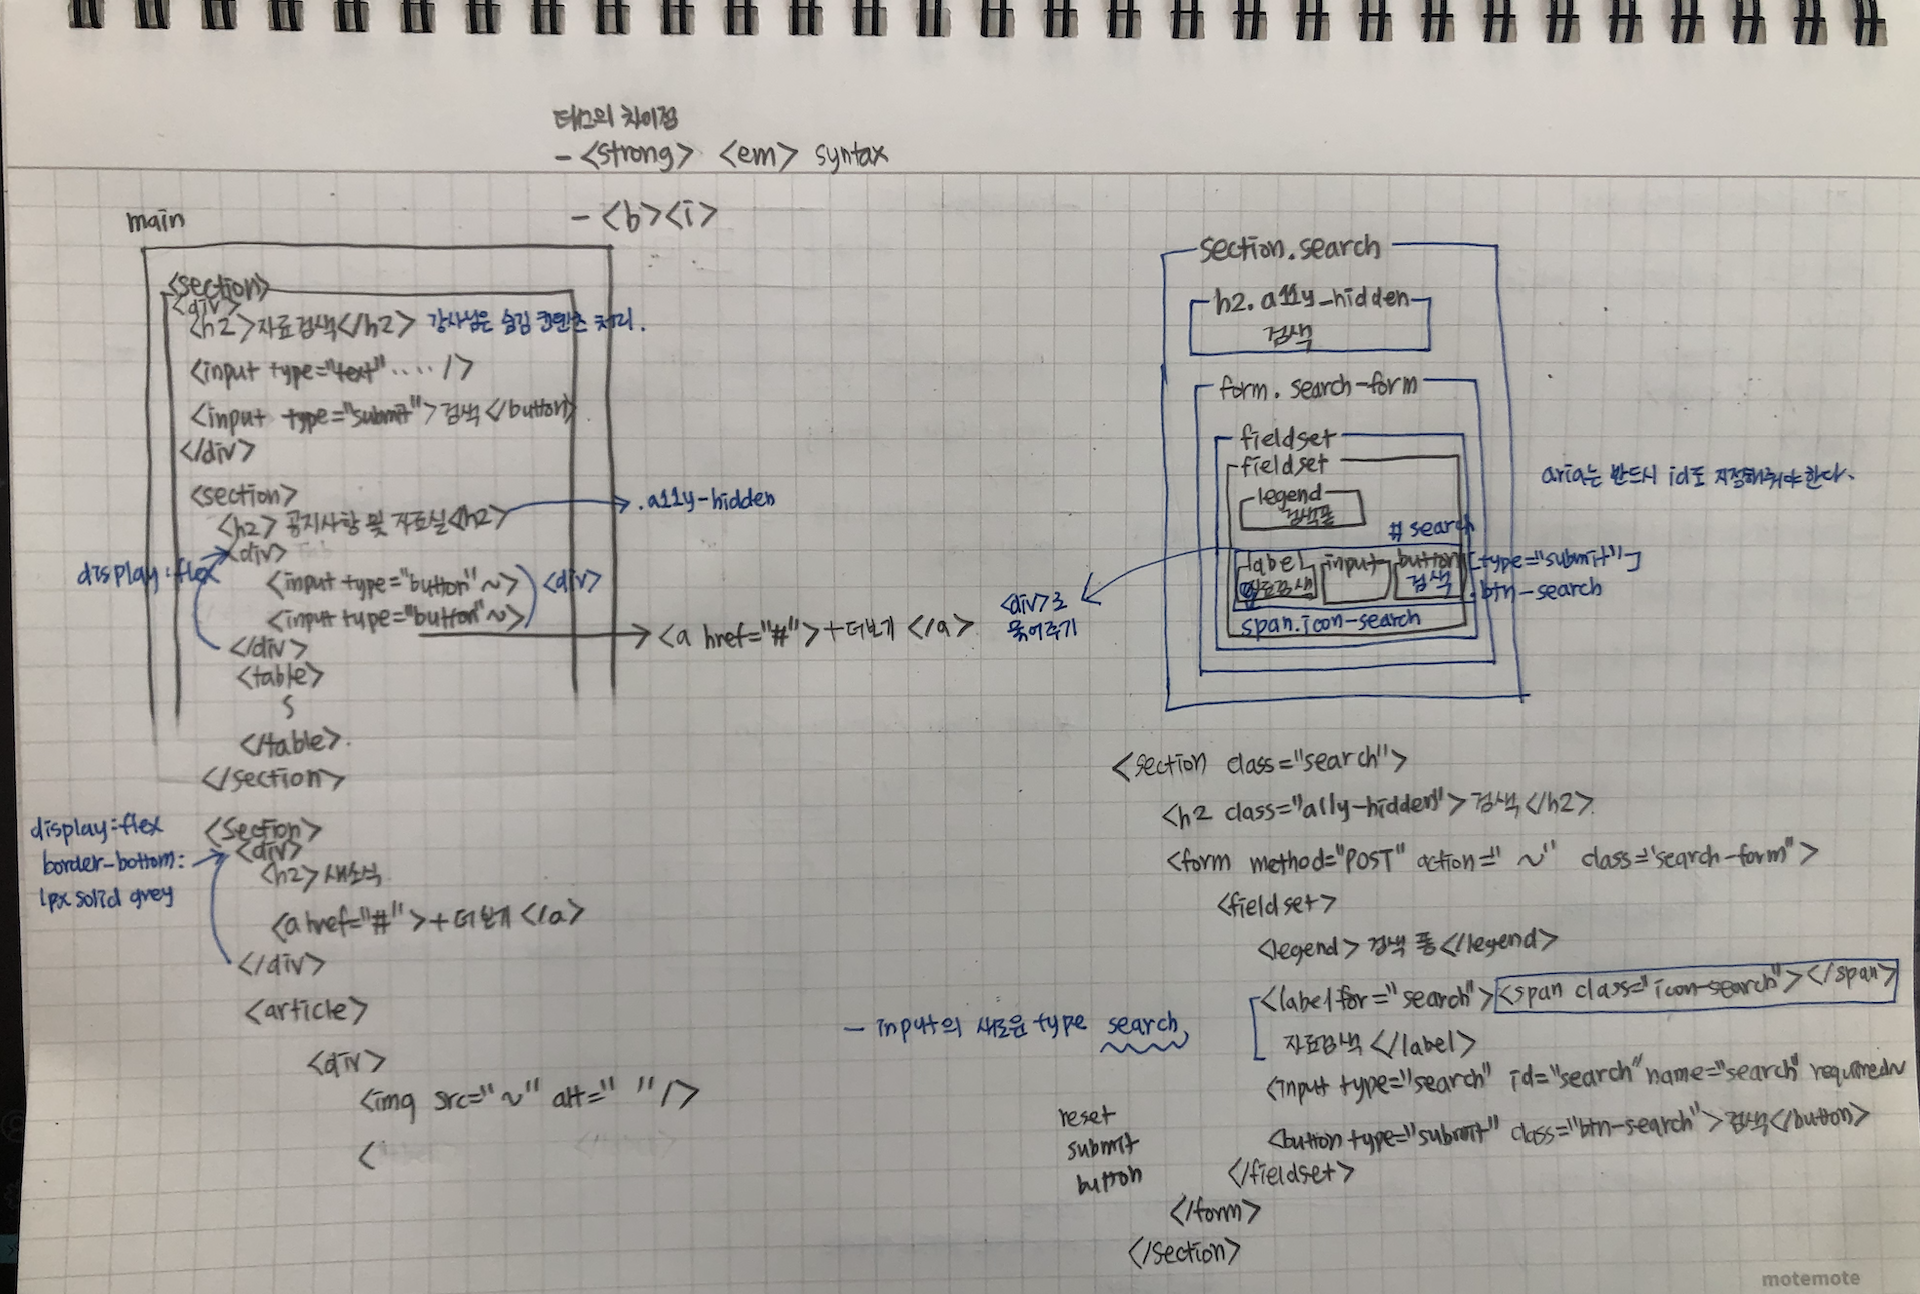 태그의 차이점
- <strong> <em> syntax
- <b><i>
main
<section>
<div>
<h2>자료검색</h2> 강사님은 숨김 컨텐츠 처리.
<input type="text" ···· />
<input type="submit">검색</button>
</div>
<section>
<h2> 공지사항 및 자료실<h2>
.a11y-hidden
display:flex
<div>
<input type="button"~>
<div>
<input type="button"~>
<a href="#">+더보기 </a>
</div>
<table>
</table>.
</section>
display:flex
border-bottom:
1px solid grey
<section>
<div>
<h2> 새소식
<a href="#">+더보기 </a>
</div>
<article>
<div>
<img src="~" alt=" "/>
<
section.search
h2.a11y-hidden
검색
form.search-form
fieldset
fieldset
legend
검색폼
# search
label input button [type="submit"]
자료검색 검색 .btn-search
span.icon-search
<div>로
묶어주기
aria는 반드시 id도 지정해줘야한다.
<section class="search">
<h2 class="a11y-hidden">검색</h2>
<form method="POST" action="~" class="search-form">
<fieldset>
<legend>검색 폼</legend>
<label for="search"><span class="icon-search"></span>
자료검색 </label>
- input의 새로운 type search
<input type="search" id="search" name="search" required
<button type="submit" class="btn-search">검색</button>
reset
submit
button
</fieldset>
</form>
</section>
motemote